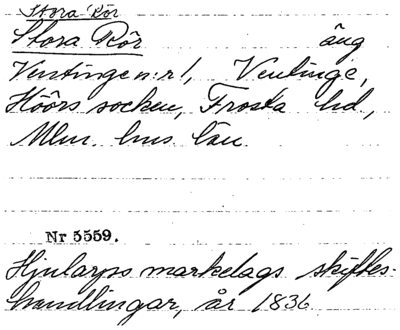 Stora Rör
Stora Rör äng
Ventinge n:r 1, Ventinge,
Höörs socken, Frosta hd,
Mlm. hus län.
Nr 5559.
Hjularps markelags skiftes-
handlingar, år 1836